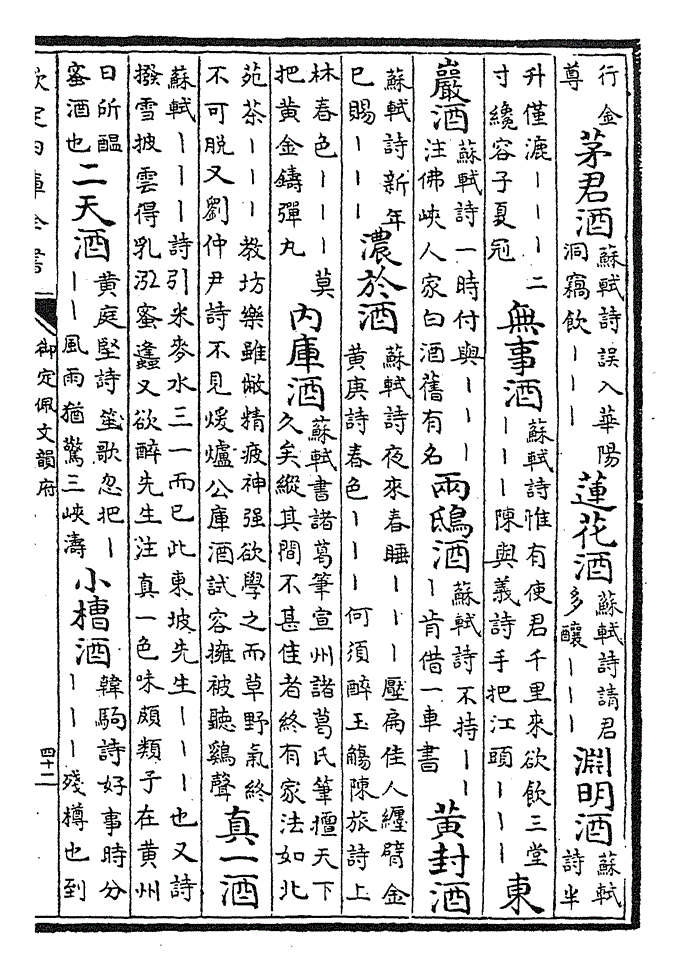 行金尊茅君酒蘇軾詩誤入華陽洞竊飲丨丨丨蓮花酒蘇軾詩請君多釀丨丨丨淵明酒蘇軾詩半
升僅漉丨丨丨二寸纔容子夏冠無事酒蘇軾詩惟有使君千里來欲飲三堂丨丨丨陳與義詩手把江頭丨丨丨東
巖酒蘇軾詩一時付與丨丨丨注佛峽人家白酒舊有名兩鴟酒蘇軾詩不持丨丨丨肯借一車書黃封酒
蘇軾詩新年已賜丨丨丨濃於酒蘇軾詩夜來春睡丨丨丨壓扁佳人纏臂金黄庚詩春色丨丨丨何須醉玉觴陳旅詩上
林春色丨丨丨莫把黄金鑄彈丸內庫酒蘇軾書諸葛筆宣州諸葛氏筆擅天下久矣縱其間不甚佳者終有家法如北
苑茶丨丨丨教坊樂雖敝精疲神强欲學之而草野氣終不可脫又劉仲尹詩不見煖爐公庫酒試容擁被聽鷄聲真一酒
蘇軾丨丨丨詩引米麥水三一而已此東坡先生丨丨丨也又詩撥雪披雲得乳泓蜜蠭又欲醉先生注真一色味頗類子在黄州
日所醞蜜酒也二天酒黄庭堅詩笙歌忽把丨丨丨風雨猶驚三峽濤小槽酒韓駒詩好事時分丨丨丨殘樽也到
欽定四庫全書
御定佩文韻府
四十二